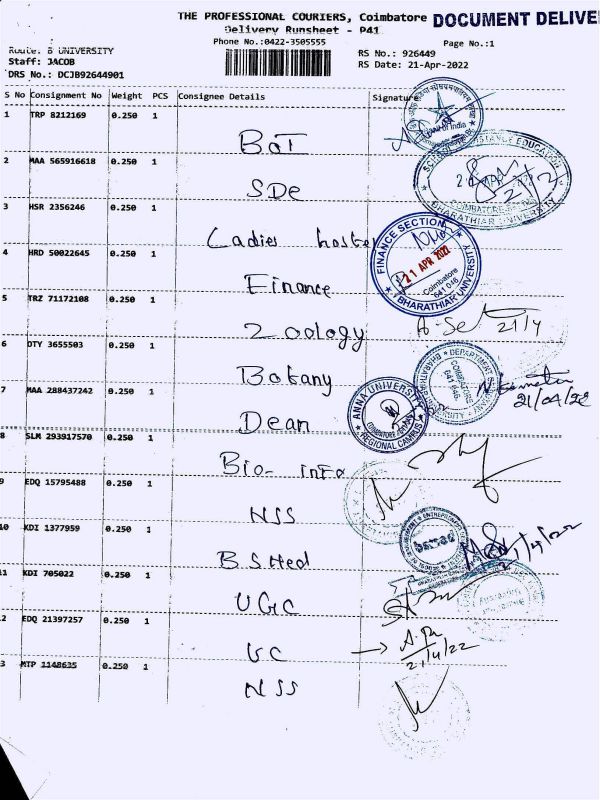 THE PROFESSIONAL COURIERS, Coimbatore DOCUMENT DELIVE
Delivery Runsheet - P41
Phone No.:0422-3505555
Page No.:1
Route: B UNIVERSITY
RS No.: 926449
Staff: JACOB
RS Date: 21-Apr-2022
DRS No.: DCJB92644901
S No Consignment No Weight PCS Consignee Details Signature
1 TRP 8212169 0.250 1
BOI
2 MAA 565916618 0.250 1
SDE
3 HSR 2356246 0.250 1
Ladies hostel
4 HRD 50022645 0.250 1
Finance
5 TRZ 71172108 0.250 1
Zoology
21/4
6 DTY 3655503 0.250 1
Botany
7 MAA 288437242 0.250 1
Dean
21/04/22
8 SLM 293917570 0.250 1
Bio-info
9 EDQ 15795488 0.250 1
NSS
10 KDI 1377959 0.250 1
B.S.Med
21/4/22
11 KDI 705022 0.250 1
UGC
2 EDQ 21397257 0.250 1
GC
21/4/22
3 MTP 1148635 0.250 1
NSS
of India
DISTANCE EDUCATION
COIMBATORE
BHARATHIAR UNIVERSITY
FINANCE SECTION
21 APR 2022
Coimbatore
641 046
BHARATHIAR UNIVERSITY
DEPARTMENT
COIMBATORE
641 046
ANNA UNIVERSITY
REGIONAL CAMPUS